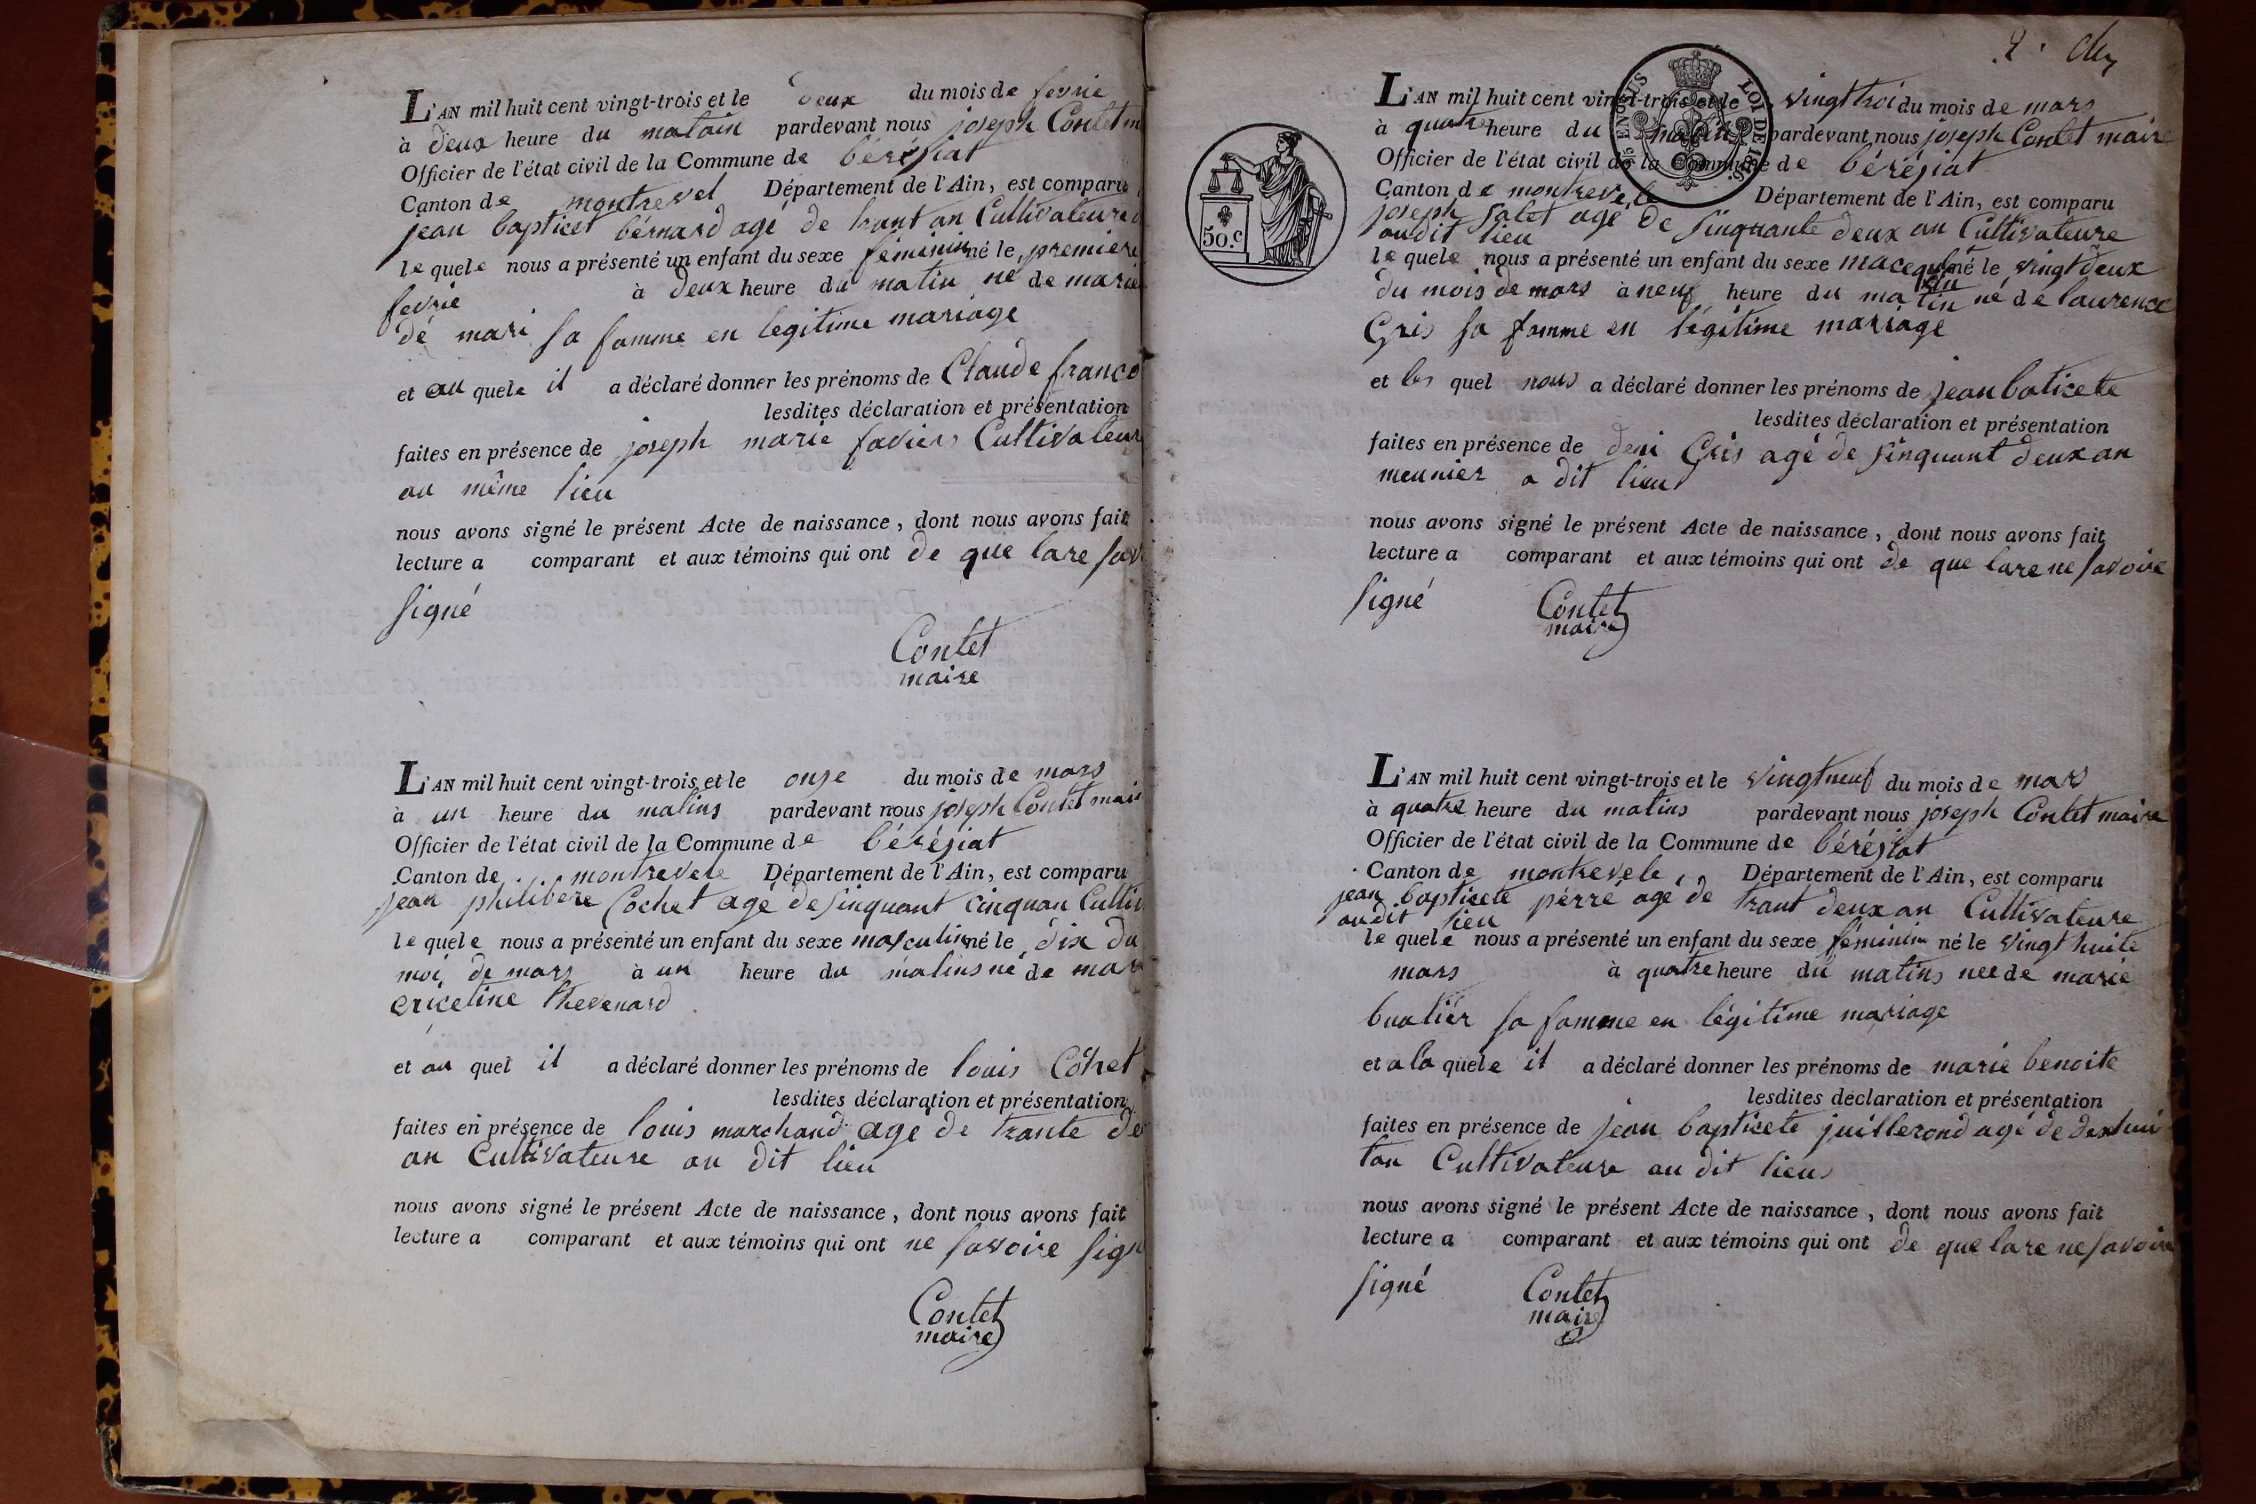 L'AN mil huit cent vingt-trois et le deux du mois de fevrie
à deux heure du matain pardevant nous joseph Contet m
Officier de l'état civil de la Commune de béréziat
Canton de montrevel Département de l'Ain, est comparu
jean bapticet bérnard agé de trant an Cultivateure
le quele nous a présenté un enfant du sexe féminin né le premiere
fevrie à deux heure du matin né de marie
dé mari sa famme en legitime mariage
et au quele il a déclaré donner les prénoms de Claude franco
lesdites déclaration et présentation
faites en présence de joseph marie faviers Cultivateur
au même lieu
nous avons signé le présent Acte de naissance, dont nous avons fait
lecture a comparant et aux témoins qui ont de que lare sav
signé
Contet
maire
L'AN mil huit cent vingt-trois et le onze du mois de mars
à un heure du matins pardevant nous joseph Contet mair
Officier de l'état civil de la Commune de béréziat
Canton de montrevele Département de l'Ain, est comparu
jean philibere Cochet agé de sinquant cinquan Cultiv
le quele nous a présenté un enfant du sexe masculin né le dix du
moi de mars à un heure du matins né de mar
ericetine thevenard
et au quel il a déclaré donner les prénoms de louis Cohet
lesdites déclaration et présentation
faites en présence de louis marchand agé de trante de
an Cultivateure au dit lieu
nous avons signé le présent Acte de naissance, dont nous avons fait
lecture a comparant et aux témoins qui ont ne savoire sign
Contet
maire
2.
L'AN mil huit cent vingt-trois et le vingt troi du mois de mars
à quatre heure du matins pardevant nous joseph Contet maire
Officier de l'état civil de la Commune de béréziat
Canton de montrevele Département de l'Ain, est comparu
joseph salet agé de sinquante deux an Cultivateure
audit lieu
le quele nous a présenté un enfant du sexe macequlin né le vingt deux
du mois de mars à neuf heure du matin né de laurence
Gris sa famme en légitime mariage
et les quel nous a déclaré donner les prénoms de jean baticete
lesdites déclaration et présentation
faites en présence de deni Gris agé de sinquant deux an
meunier a dit lieu
nous avons signé le présent Acte de naissance, dont nous avons fait
lecture a comparant et aux témoins qui ont de que lare ne savoire
signé
Contet
maire
50.c
LOI DE 1816.
L'AN mil huit cent vingt-trois et le vingt neuf du mois de mars
à quatre heure du matins pardevant nous joseph Contet maire
Officier de l'état civil de la Commune de béréziat
Canton de montrevele, Département de l'Ain, est comparu
jean bapticete pérré agé de trant deux an Cultivateure
audit lieu
le quele nous a présenté un enfant du sexe féminin né le vingt huite
mars à quatre heure du matins nee de marie
buatiér sa famme en légitime mariage
et a la quele il a déclaré donner les prénoms de marie benoite
lesdites déclaration et présentation
faites en présence de jean bapticete juillerond agé de dexhui
tan Cultivateure au dit lieu
nous avons signé le présent Acte de naissance, dont nous avons fait
lecture a comparant et aux témoins qui ont de que lare ne savoire
signé
Contet
maire